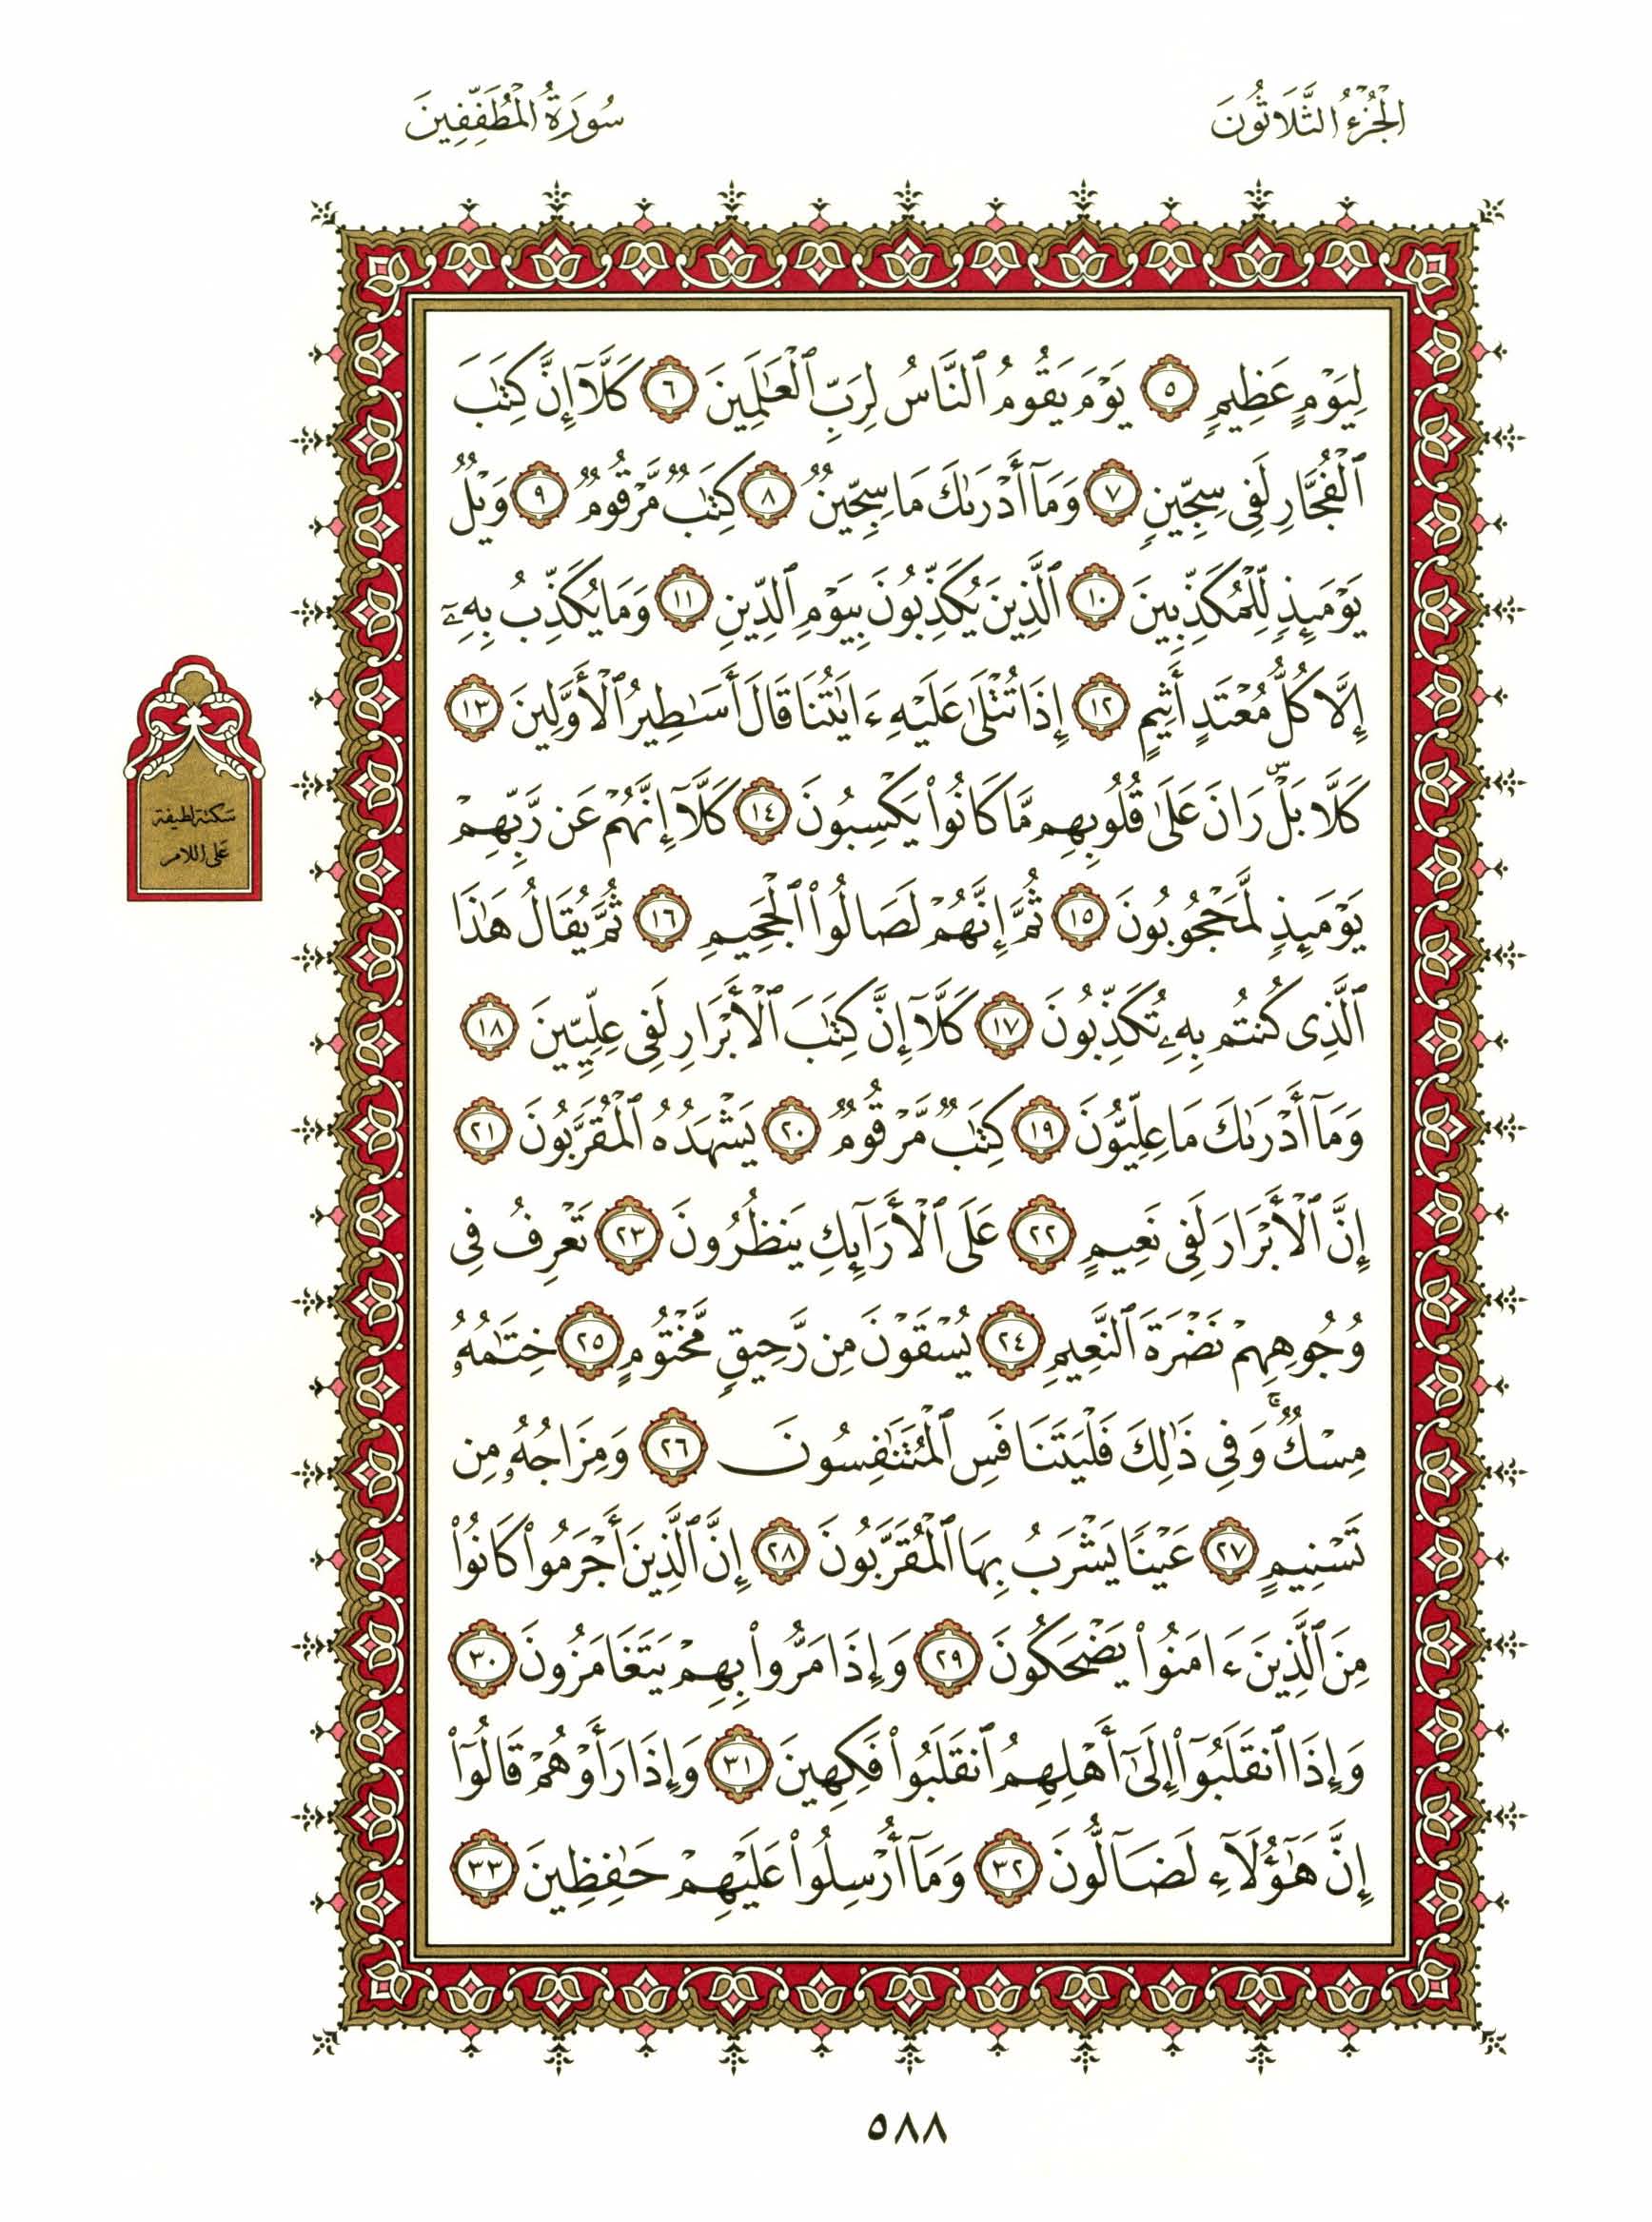 الجُزْءُ الثَّلَاثُونَ
سُورَةُ المُطَفِّفِينَ
لِيَوْمٍ عَظِيمٍ ٥ يَوْمَ يَقُومُ ٱلنَّاسُ لِرَبِّ ٱلْعَٰلَمِينَ ٦ كَلَّآ إِنَّ كِتَٰبَ
ٱلْفُجَّارِ لَفِى سِجِّينٍ ٧ وَمَآ أَدْرَىٰكَ مَا سِجِّينٌ ٨ كِتَٰبٌ مَّرْقُومٌ ٩ وَيْلٌ
يَوْمَئِذٍ لِّلْمُكَذِّبِينَ ١٠ ٱلَّذِينَ يُكَذِّبُونَ بِيَوْمِ ٱلدِّينِ ١١ وَمَا يُكَذِّبُ بِهِۦٓ
إِلَّا كُلُّ مُعْتَدٍ أَثِيمٍ ١٢ إِذَا تُتْلَىٰ عَلَيْهِ ءَايَٰتُنَا قَالَ أَسَٰطِيرُ ٱلْأَوَّلِينَ ١٣
كَلَّا بَلْۜ رَانَ عَلَىٰ قُلُوبِهِم مَّا كَانُوا۟ يَكْسِبُونَ ١٤ كَلَّآ إِنَّهُمْ عَن رَّبِّهِمْ
يَوْمَئِذٍ لَّمَحْجُوبُونَ ١٥ ثُمَّ إِنَّهُمْ لَصَالُوا۟ ٱلْجَحِيمِ ١٦ ثُمَّ يُقَالُ هَٰذَا
ٱلَّذِى كُنتُم بِهِۦ تُكَذِّبُونَ ١٧ كَلَّآ إِنَّ كِتَٰبَ ٱلْأَبْرَارِ لَفِى عِلِّيِّينَ ١٨
وَمَآ أَدْرَىٰكَ مَا عِلِّيُّونَ ١٩ كِتَٰبٌ مَّرْقُومٌ ٢٠ يَشْهَدُهُ ٱلْمُقَرَّبُونَ ٢١
إِنَّ ٱلْأَبْرَارَ لَفِى نَعِيمٍ ٢٢ عَلَى ٱلْأَرَآئِكِ يَنظُرُونَ ٢٣ تَعْرِفُ فِى
وُجُوهِهِمْ نَضْرَةَ ٱلنَّعِيمِ ٢٤ يُسْقَوْنَ مِن رَّحِيقٍ مَّخْتُومٍ ٢٥ خِتَٰمُهُۥ
مِسْكٌ ۚ وَفِى ذَٰلِكَ فَلْيَتَنَافَسِ ٱلْمُتَنَٰفِسُونَ ٢٦ وَمِزَاجُهُۥ مِن
تَسْنِيمٍ ٢٧ عَيْنًا يَشْرَبُ بِهَا ٱلْمُقَرَّبُونَ ٢٨ إِنَّ ٱلَّذِينَ أَجْرَمُوا۟ كَانُوا۟
مِنَ ٱلَّذِينَ ءَامَنُوا۟ يَضْحَكُونَ ٢٩ وَإِذَا مَرُّوا۟ بِهِمْ يَتَغَامَزُونَ ٣٠
وَإِذَا ٱنقَلَبُوٓا۟ إِلَىٰٓ أَهْلِهِمُ ٱنقَلَبُوا۟ فَكِهِينَ ٣١ وَإِذَا رَأَوْهُمْ قَالُوٓا۟
إِنَّ هَٰٓؤُلَآءِ لَضَآلُّونَ ٣٢ وَمَآ أُرْسِلُوا۟ عَلَيْهِمْ حَٰفِظِينَ ٣٣
سكتة لطيفة
على اللام
٥٨٨